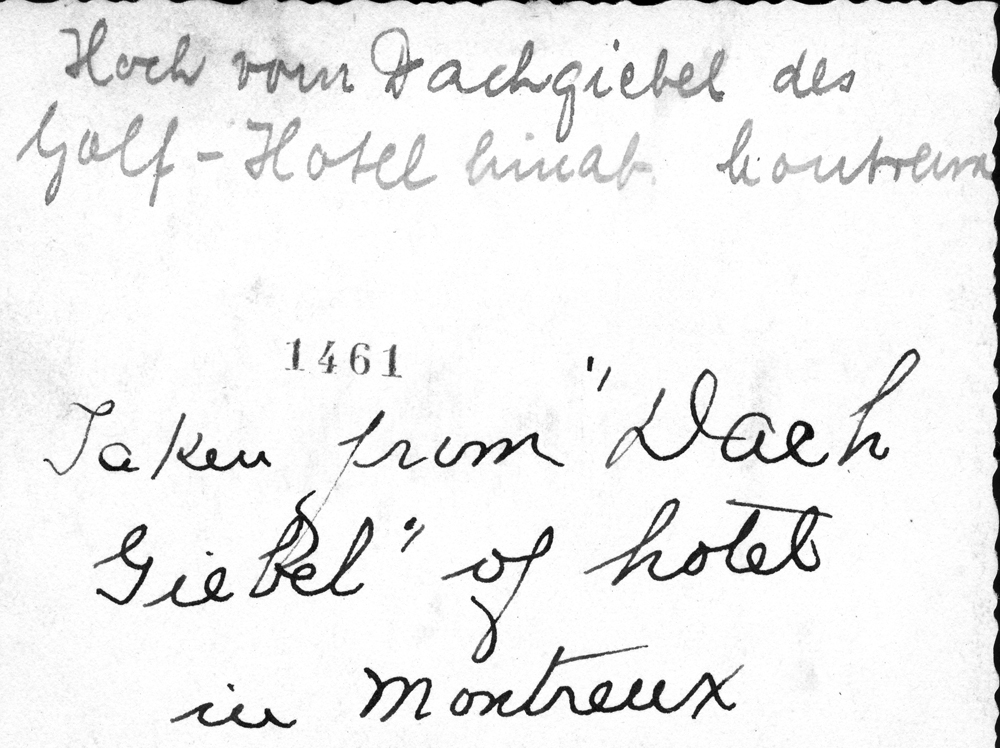 Hoch vom Dachgiebel des
Golf-Hotel hinab. Montreux
1461
Taken from "Dach
Giebel" of hotel
in Montreux